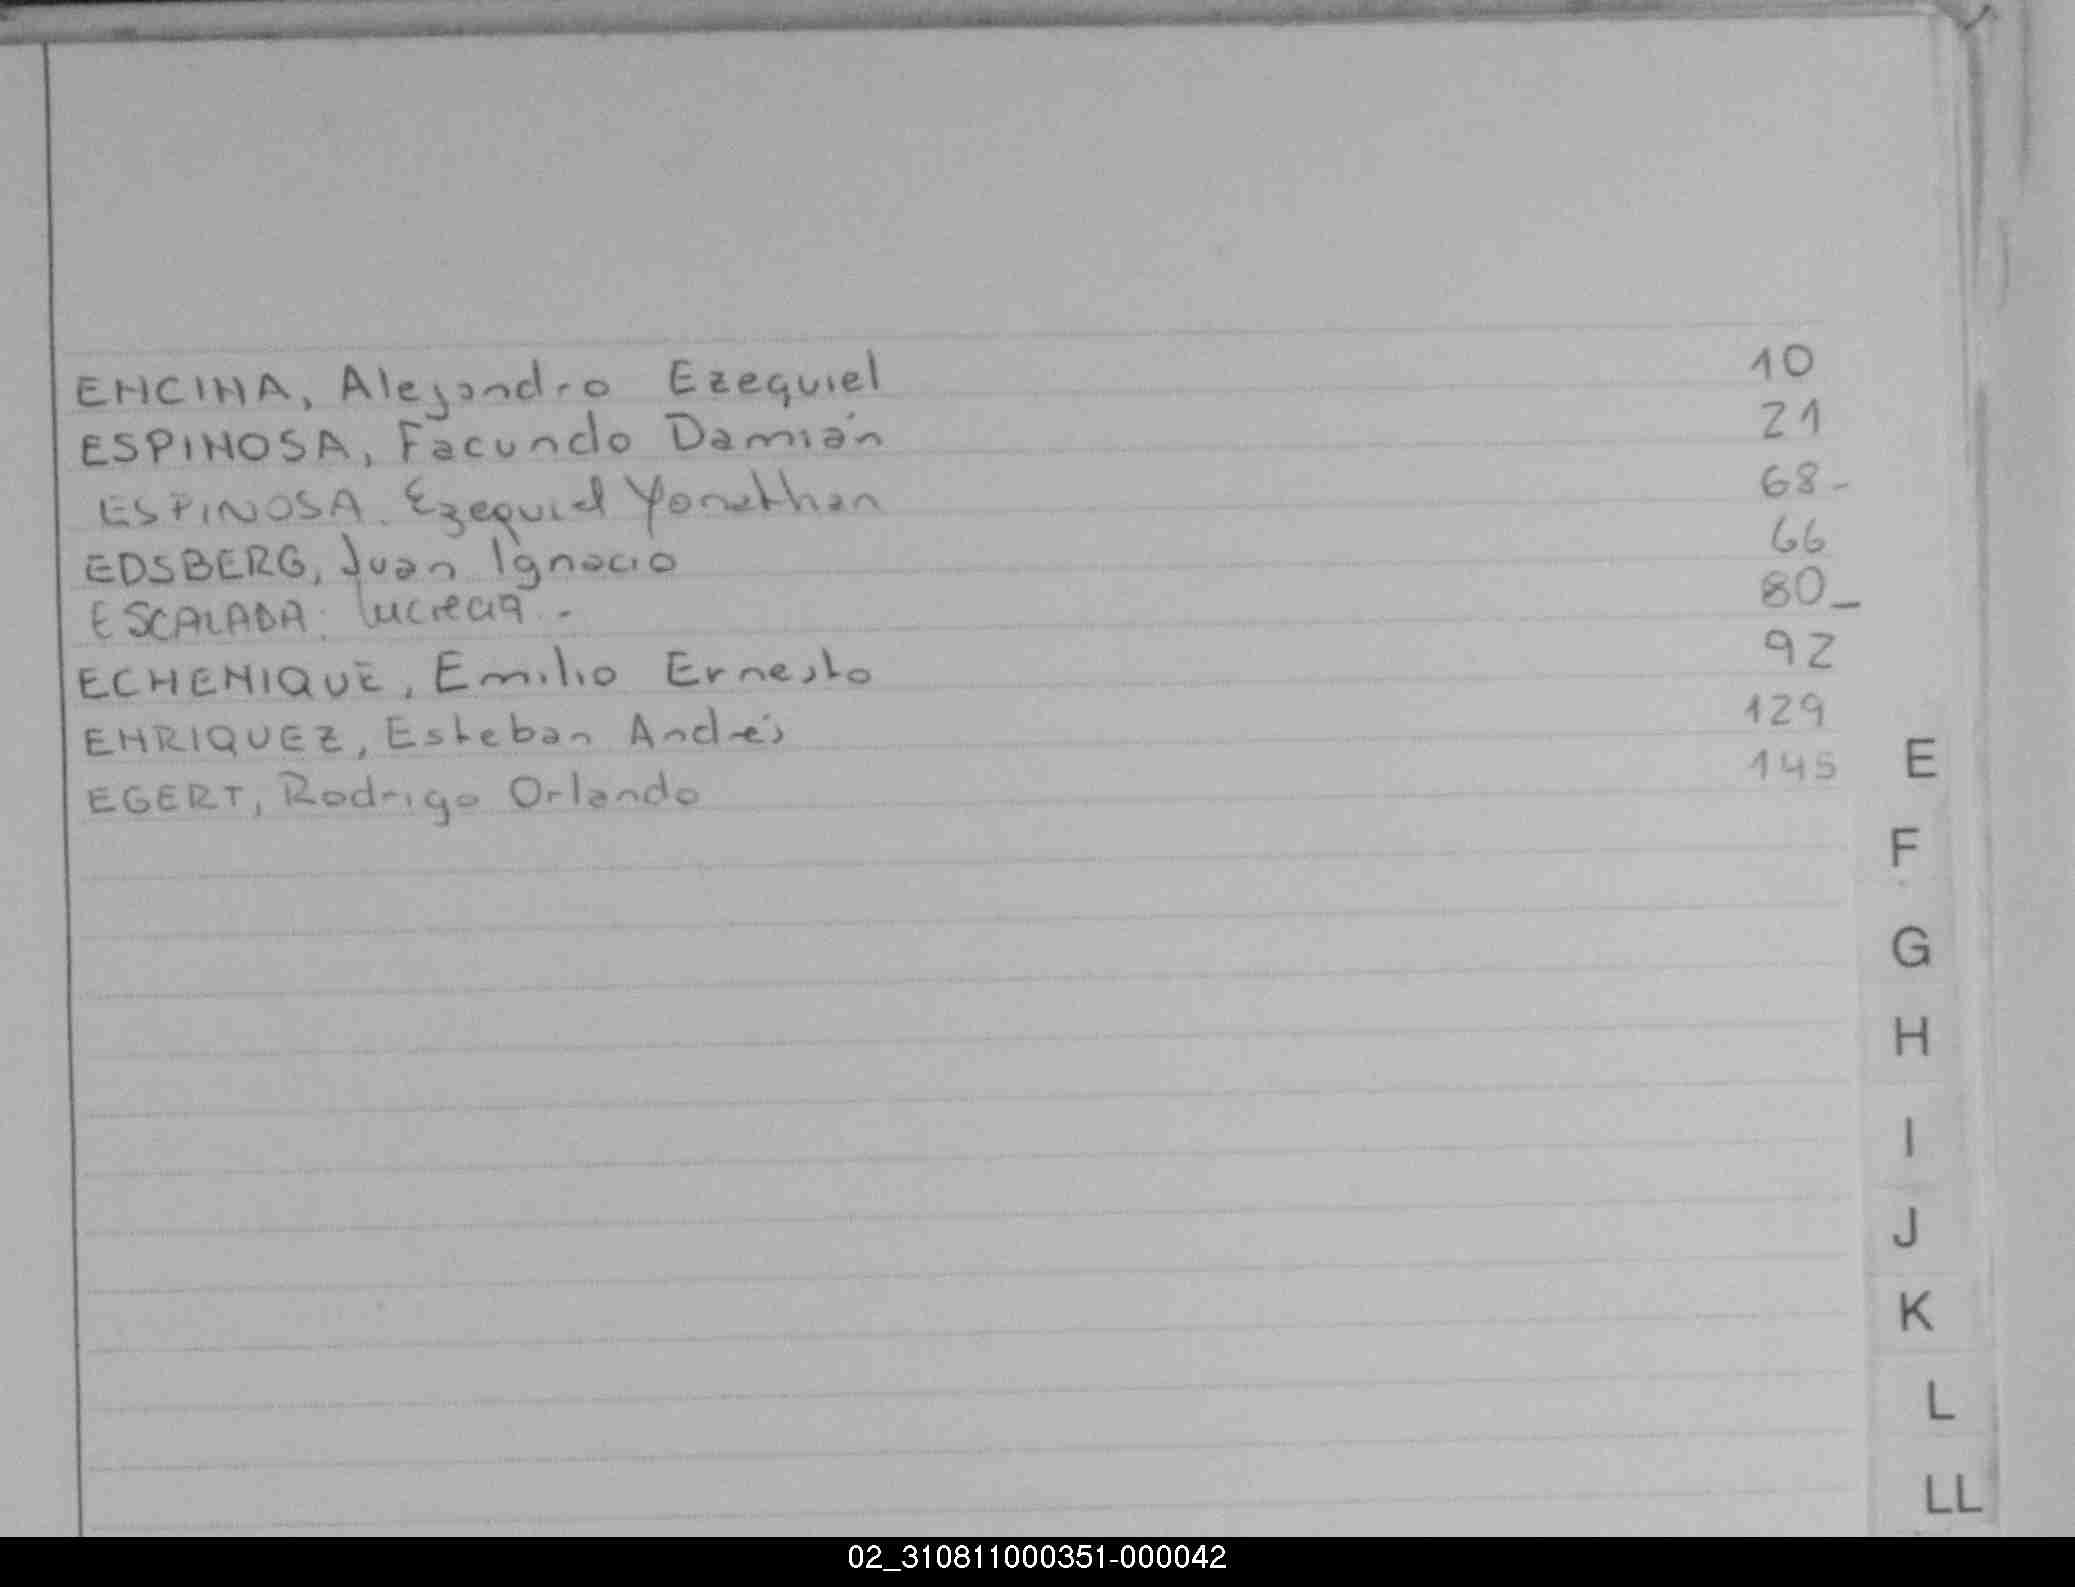 ENCINA, Alejandro Ezequiel 10
ESPINOSA, Facundo Damián 21
ESPINOSA. Ezequiel Yonathan 68-
EDSBERG, Juan Ignacio 66
ESCALADA. Lucrecia.- 80_
ECHENIQUE, Emilio Ernesto 92
ENRIQUEZ, Esteban Andrés 129
EGERT, Rodrigo Orlando 145
E
F
G
H
I
J
K
L
LL
02_310811000351-000042